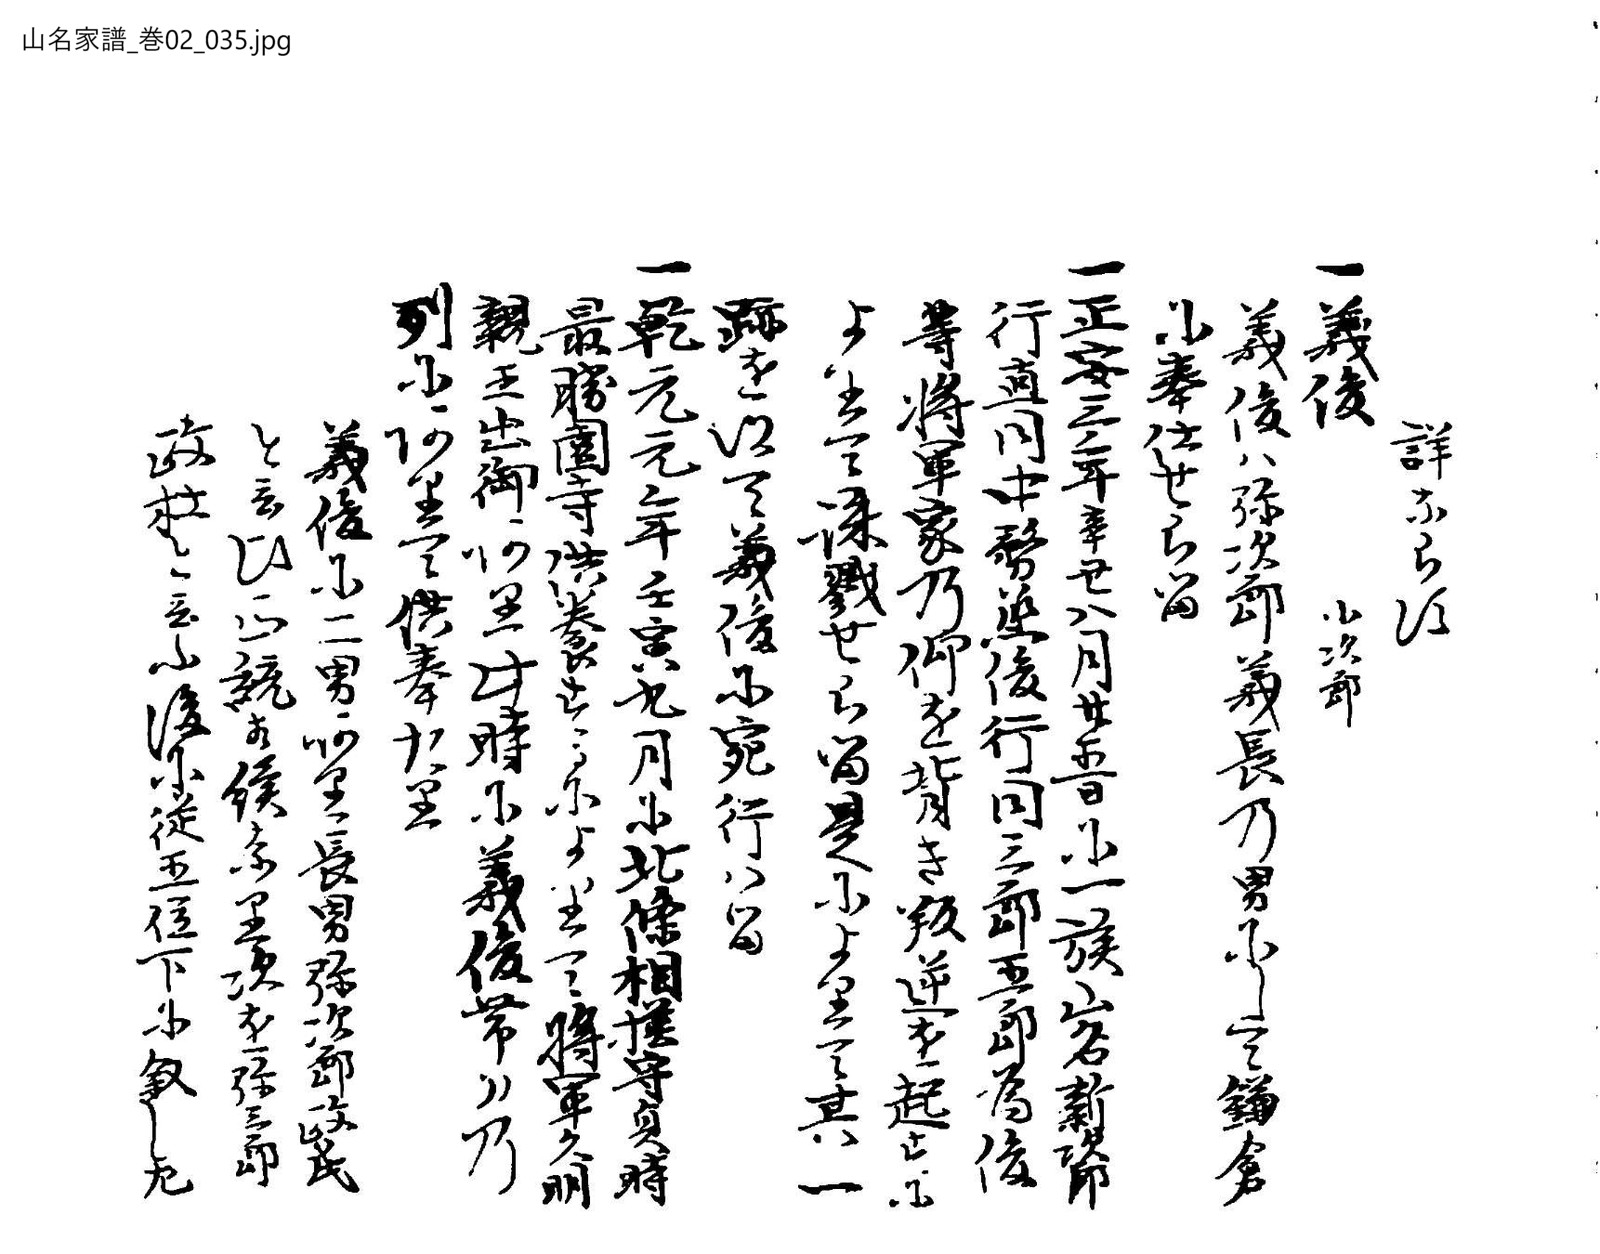 山名家譜_巻02_035.jpg
詳ならす
一義俊　小次郎
義俊ハ弥次郎義長乃男にして鎌倉
に奉仕せらる
一正安三年辛丑八月廿五日に一族山名新次郎
行直同中務丞俊行同三郎五郎為俊
等将軍家乃仰を背き叛逆を起すに
よりて誅戮せらる是によりて其一
跡を以て義俊に宛行ハる
一乾元元年壬寅九月に北條相模守貞時
最勝園寺供養するによりて将軍久明
親王出御あり此時に義俊帯刀乃
列にありて供奉たり
義俊に二男あり長男弥次郎政氏
と云ひ正統を継たり次を弥三郎
政
と云ふ後に従五位下に叙し